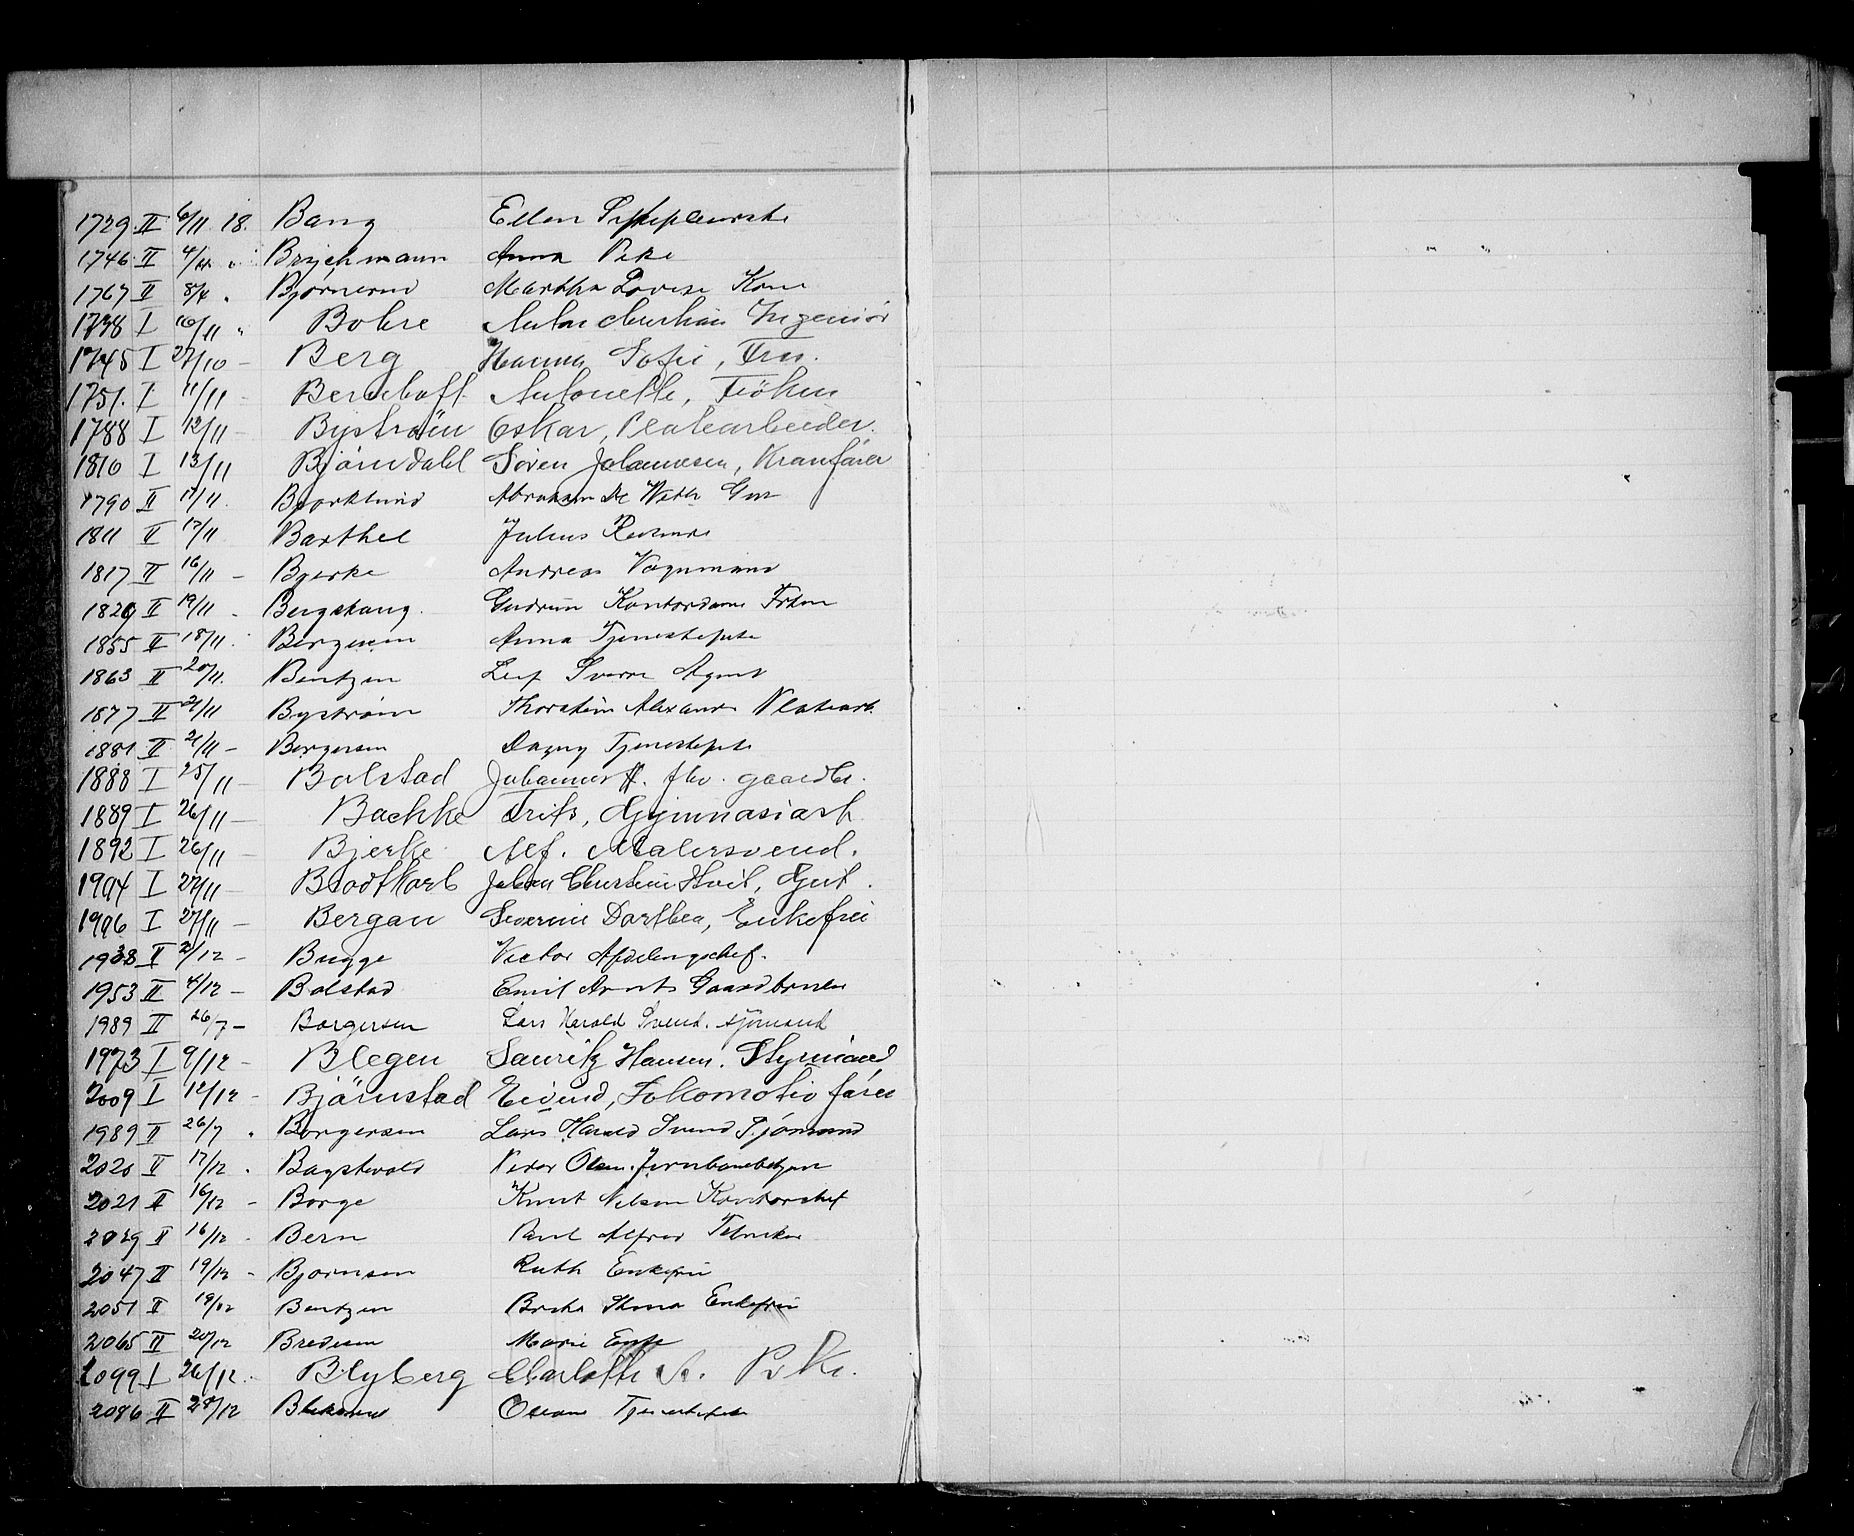 1729 II 6/11 18. Bang Ellen
1746 II 4/11 " Brychmann Anna Pike
1767 II 8/11 " Bjørnerud Martha Lovise Kone
1738 I 10/11 " Bohre Anton Christian Ingeniør
1745 I 27/10 – Berg Hanna Sofie, Fru.
1751. I 11/11 – Berchhoff Antonette, Fröken
1788 I 12/11 – Byström Oskar, Platearbeider.
1810 I 13/11 Bjørndahl Søren Johannesen, Kranfører
1790 II 17/11 Bjorklund Abraham De Wette Gut
1811 II 17/11 Barthel Julius
1817 II 16/11 – Bjerke Andreas Vognmand
1829 II 19/11 . Bergskaug. Gudrun Kontordame Frken
1855 II 18/11 . Bergersen Anna Tjenestepike
1863 II 20/11. Bentzen Leif Sverre Agent
1877 II 21/11 Bystrøm Thorstein Alexander Platearb.
1881 II 21/11 – Bergersen Dagny Tjenestepike
1888 I 25/11 – Bolstad Johannes H. fhv. gaardbr.
1889 I 26/11 – Bachke Frits, Gymnasiast
1892 I 26/11 – Bjerke Alf. Malersvend.
1904 I 27/11 – Brodtkorb Johan Christian Hvit, Gut.
1906 I 27/11 – Bergau Severine Dorthea, Enkefru
1938 II 2/12 – Bugge Victor Afdelingschef.
1953 II 4/12 – Bolstad Emil Arnt Gaardbruker
1989 II 26/7 – Borgersen Lars Harald Svend. sjömand
1973 I 9/12 – Blegen Lauritz Hansen. Styrmand
2009 I 12/12 – Bjørnstad Eivind, Lokomotivfører
1989 II 26/7 . Borgersen Lars Harald Svend Sjømand
2020 II 17/12 . Bagstevold Peder Olsen. Jernbanebetjen
2021 II 16/12 – Borge Knut Nilsen Kontorchef
2029 II 16/12 – Bern Paul Alfred
2047 II 19/12 – Bjornsen Ruth Enkefru
2051 II 19/12 Bentzen Enkefru
2065 II 20/12 Bredesen Marie Enke
2099 I 26/12. Blyberg Charlotte A. Pike.
2086 II 28/12 Tjenestepike